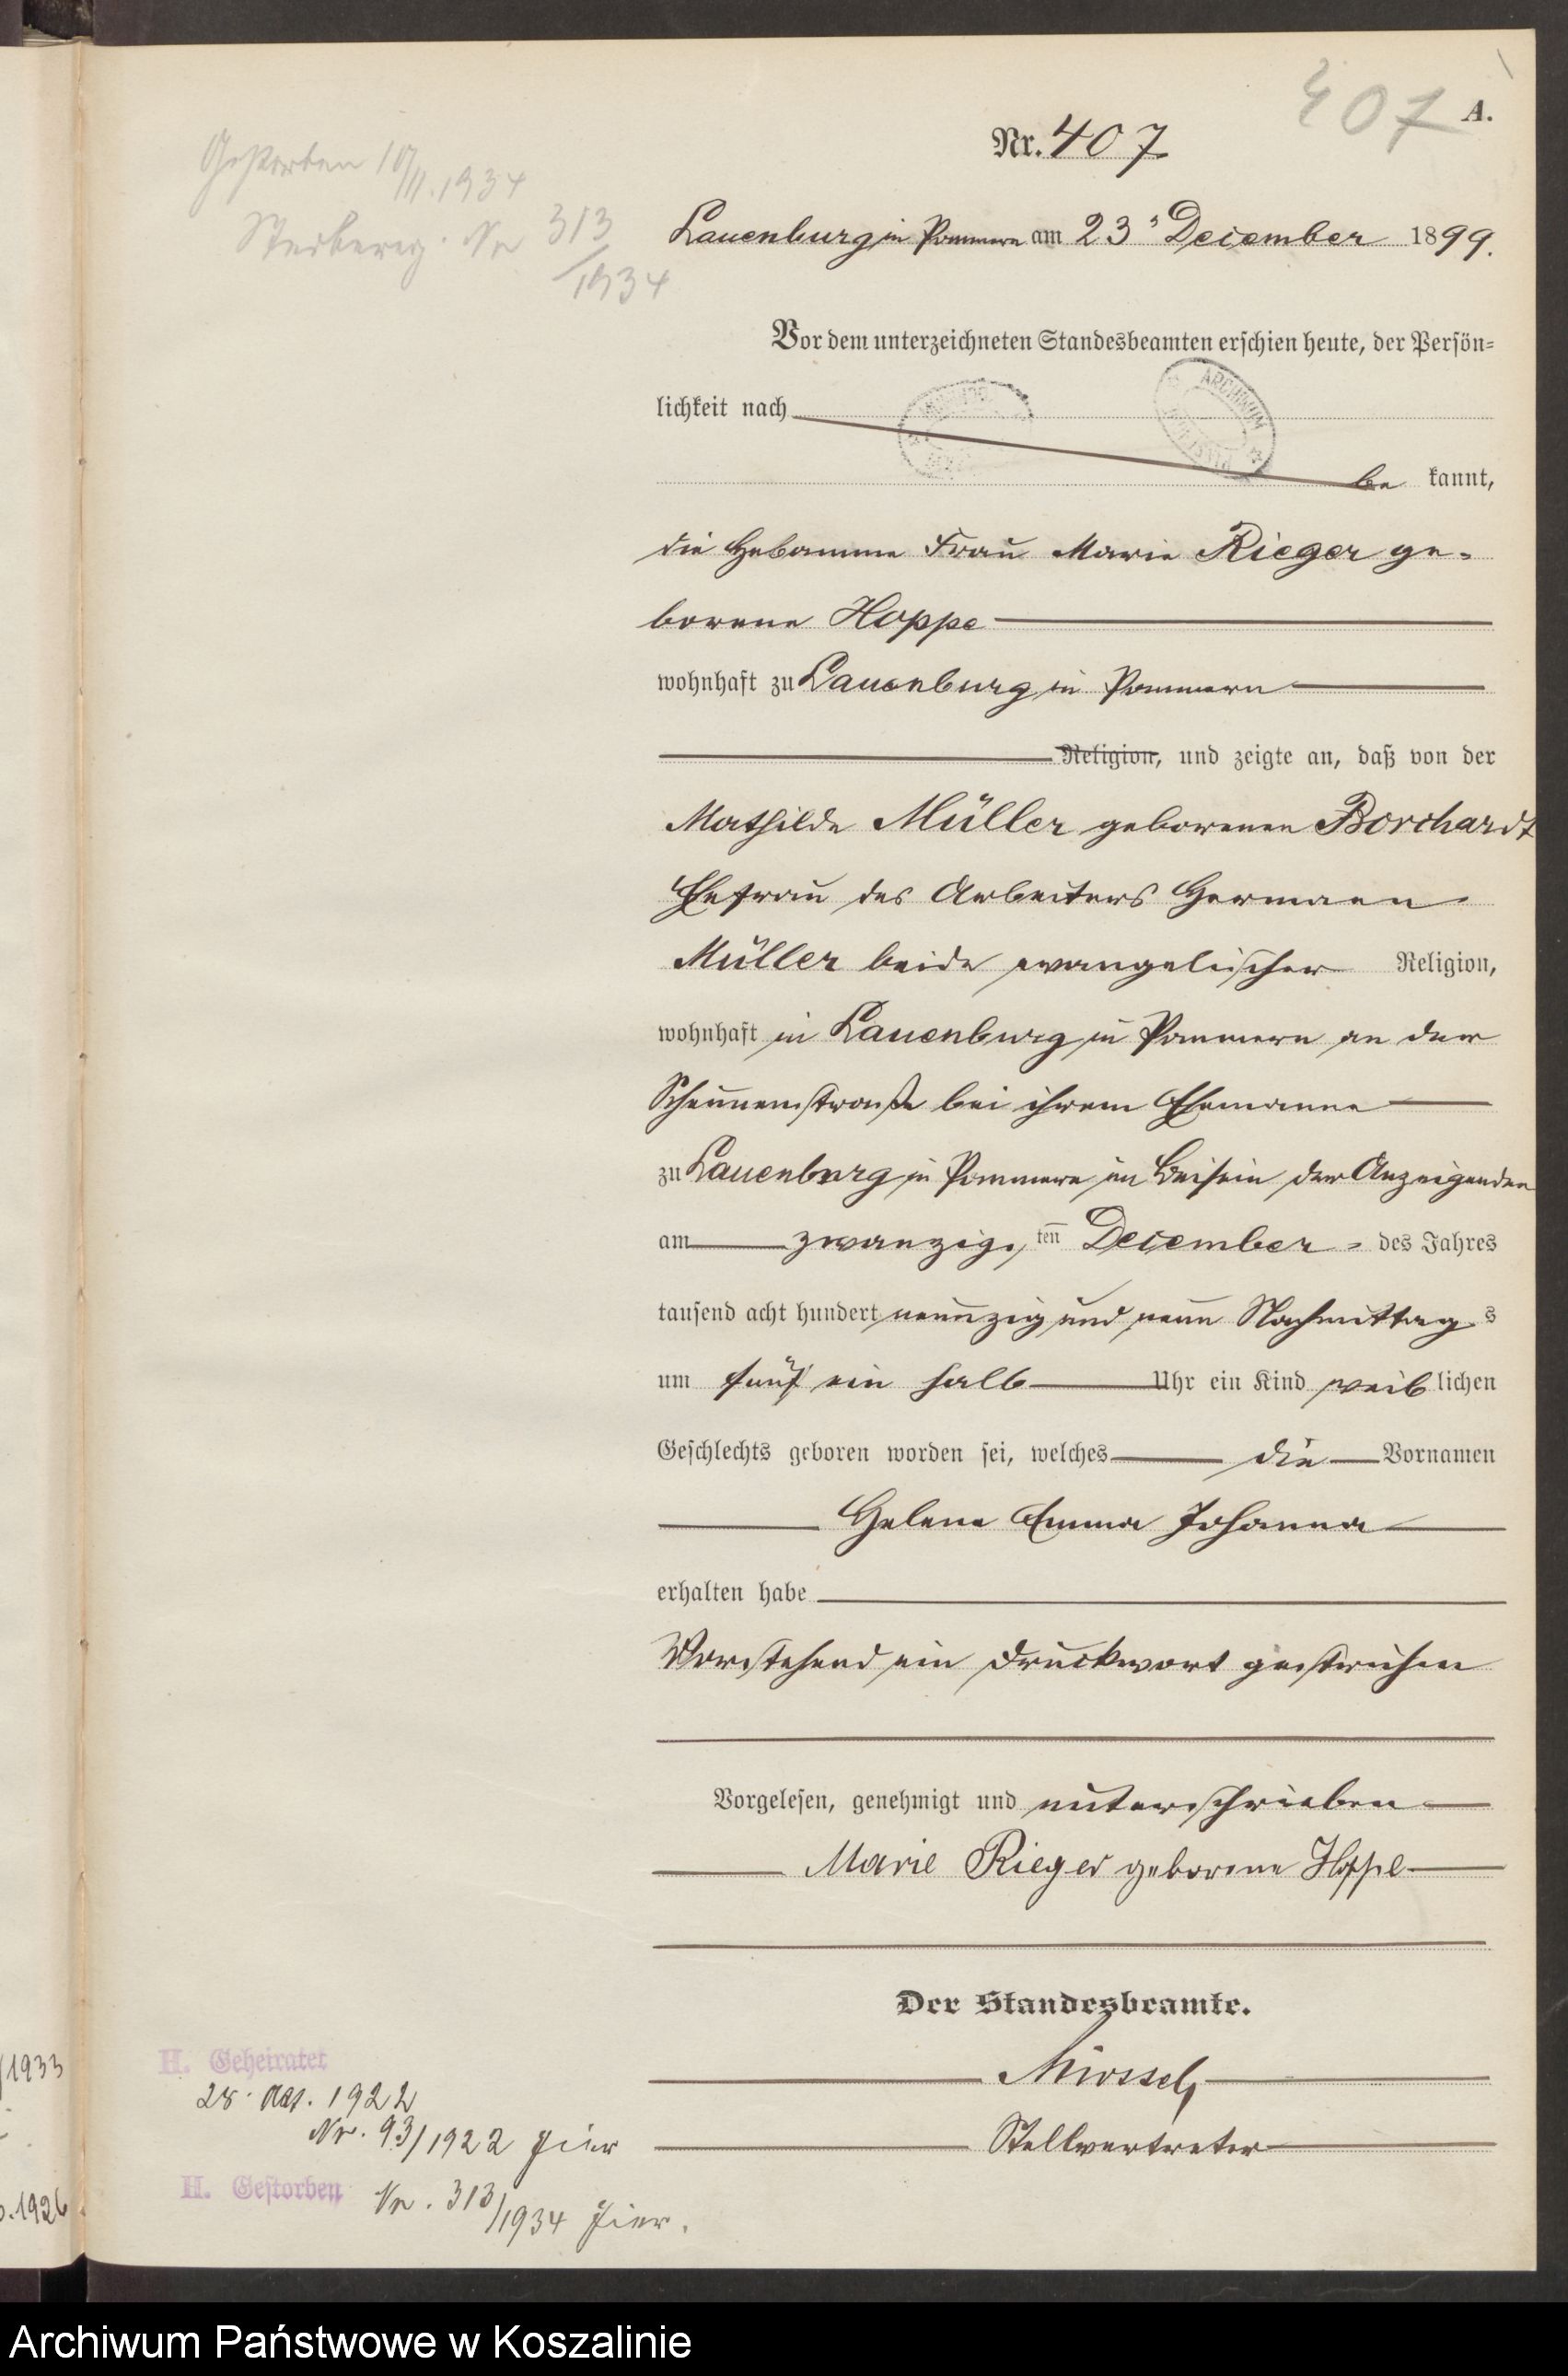 407 A.
Nr. 407
Gestorben 10/11.1934
Sterbereg. Nr 313
/1934
Lauenburg in Pommern am 23ᵗ December 1899.
Vor dem unterzeichneten Standesbeamten erschien heute, der Persön-
lichkeit nach
be kannt,
die Hebamme Frau Marie Rieger ge-
borene Hoppe
wohnhaft zu Lauenburg in Pommern
Religion, und zeigte an, daß von der
Mathilde Müller geborenen Borchardt
Ehefrau des Arbeiters Hermann
Müller beide evangelischer Religion,
wohnhaft in Lauenburg in Pommern an der
Scheunenstraße bei ihrem Ehemanne
zu Lauenburg in Pommern im Beisein der Anzeigenden
am zwanzigsten December des Jahres
tausend acht hundert neunzig und neun Nachmittags
um fünf ein halb Uhr ein Kind weiblichen
Geschlechts geboren worden sei, welches die Vornamen
Helene Emma Johanna
erhalten habe
Vorstehend ein Druckwort gestrichen
Vorgelesen, genehmigt und unterschrieben
Marie Rieger geborene Hoppe
Der Standesbeamte.
Stellvertreter
/1933
H. Geheiratet
28. 1922
Nr. 93/1922 hier
H. Gestorben Nr. 313/1934 hier.
.1926
ARCHIWUM
Archiwum Państwowe w Koszalinie